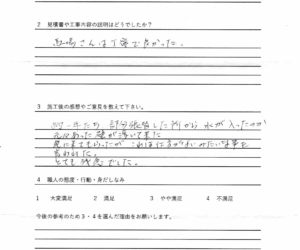 2 見積書や工事内容の説明はどうでしたか?
馬場さんは丁寧で良かった。
3 施工後の感想やご意見を教えて下さい。
部分張替した所から水が入ったのか
元々あった壁が浮いて来た
見に来てもらったが これは仕方がないみたいな事を
言われた。
とても残念でした。
4 職人の態度・行動・身だしなみ
1 大変満足 2 満足 3 やや満足 4 不満足
今後の参考のため3・4を選んだ理由をお願いします。